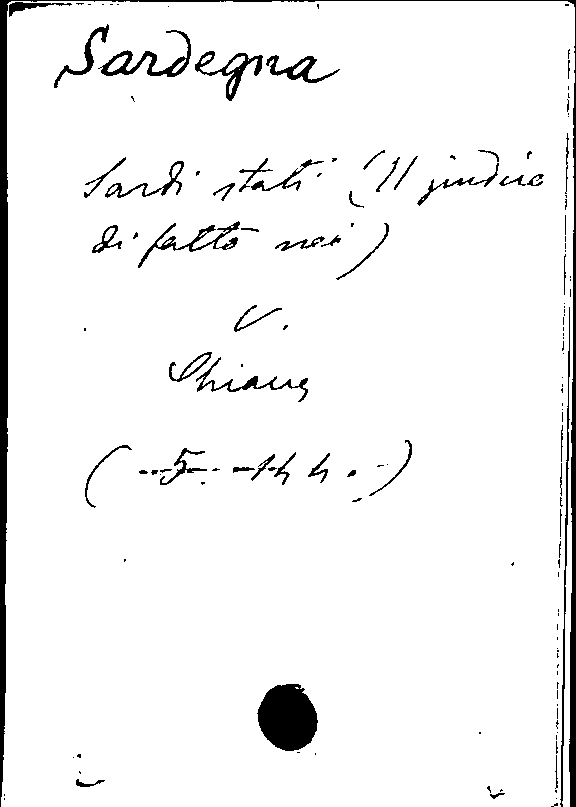 Sardegna
Sardi stati (Il giudice
di fatto nei)
V.
Chiaves